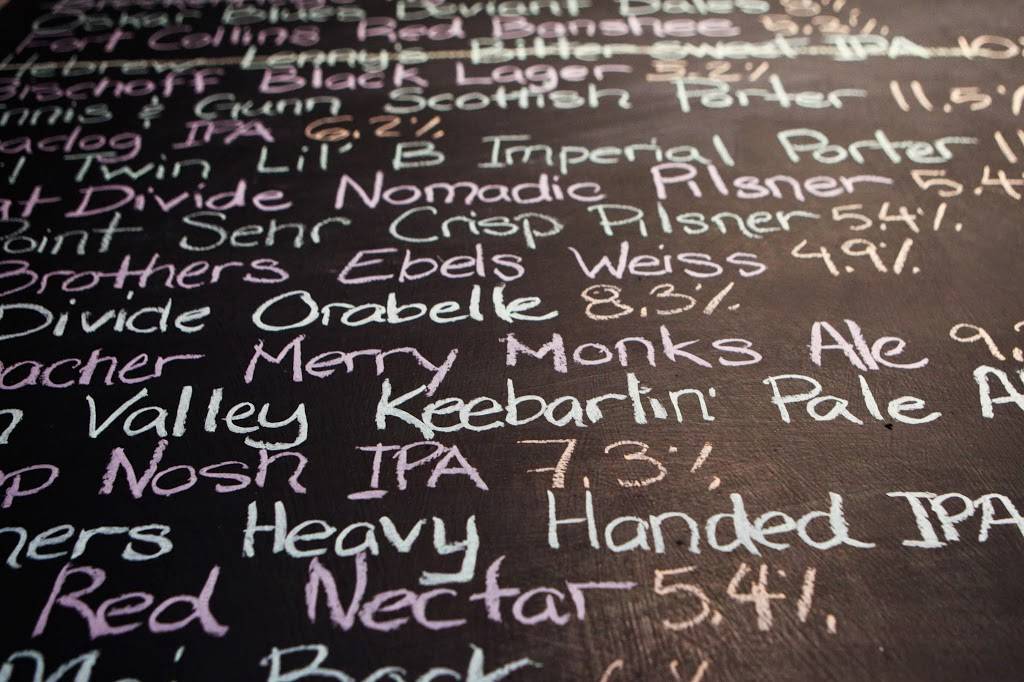 Oskar Blues Deviant Dales 8%
Fort Collins Red Banshee 5.3%
Hebrew Lenny's Bittersweet IPA 10
Bischoff Black Lager 5.2%
nnis & Gunn Scottish Porter 11.5%
adog IPA 6.2%
l Twin Lil' B Imperial Porter 11
at Divide Nomadic Pilsner 5.4
Point Sehr Crisp Pilsner 5.4%
Brothers Ebels Weiss 4.9%
Divide Orabelle 8.3%
acher Merry Monks Ale 9.
n Valley Keebarlin' Pale A
p Nosh IPA 7.3%
ners Heavy Handed IPA
Red Nectar 5.4%
Bock